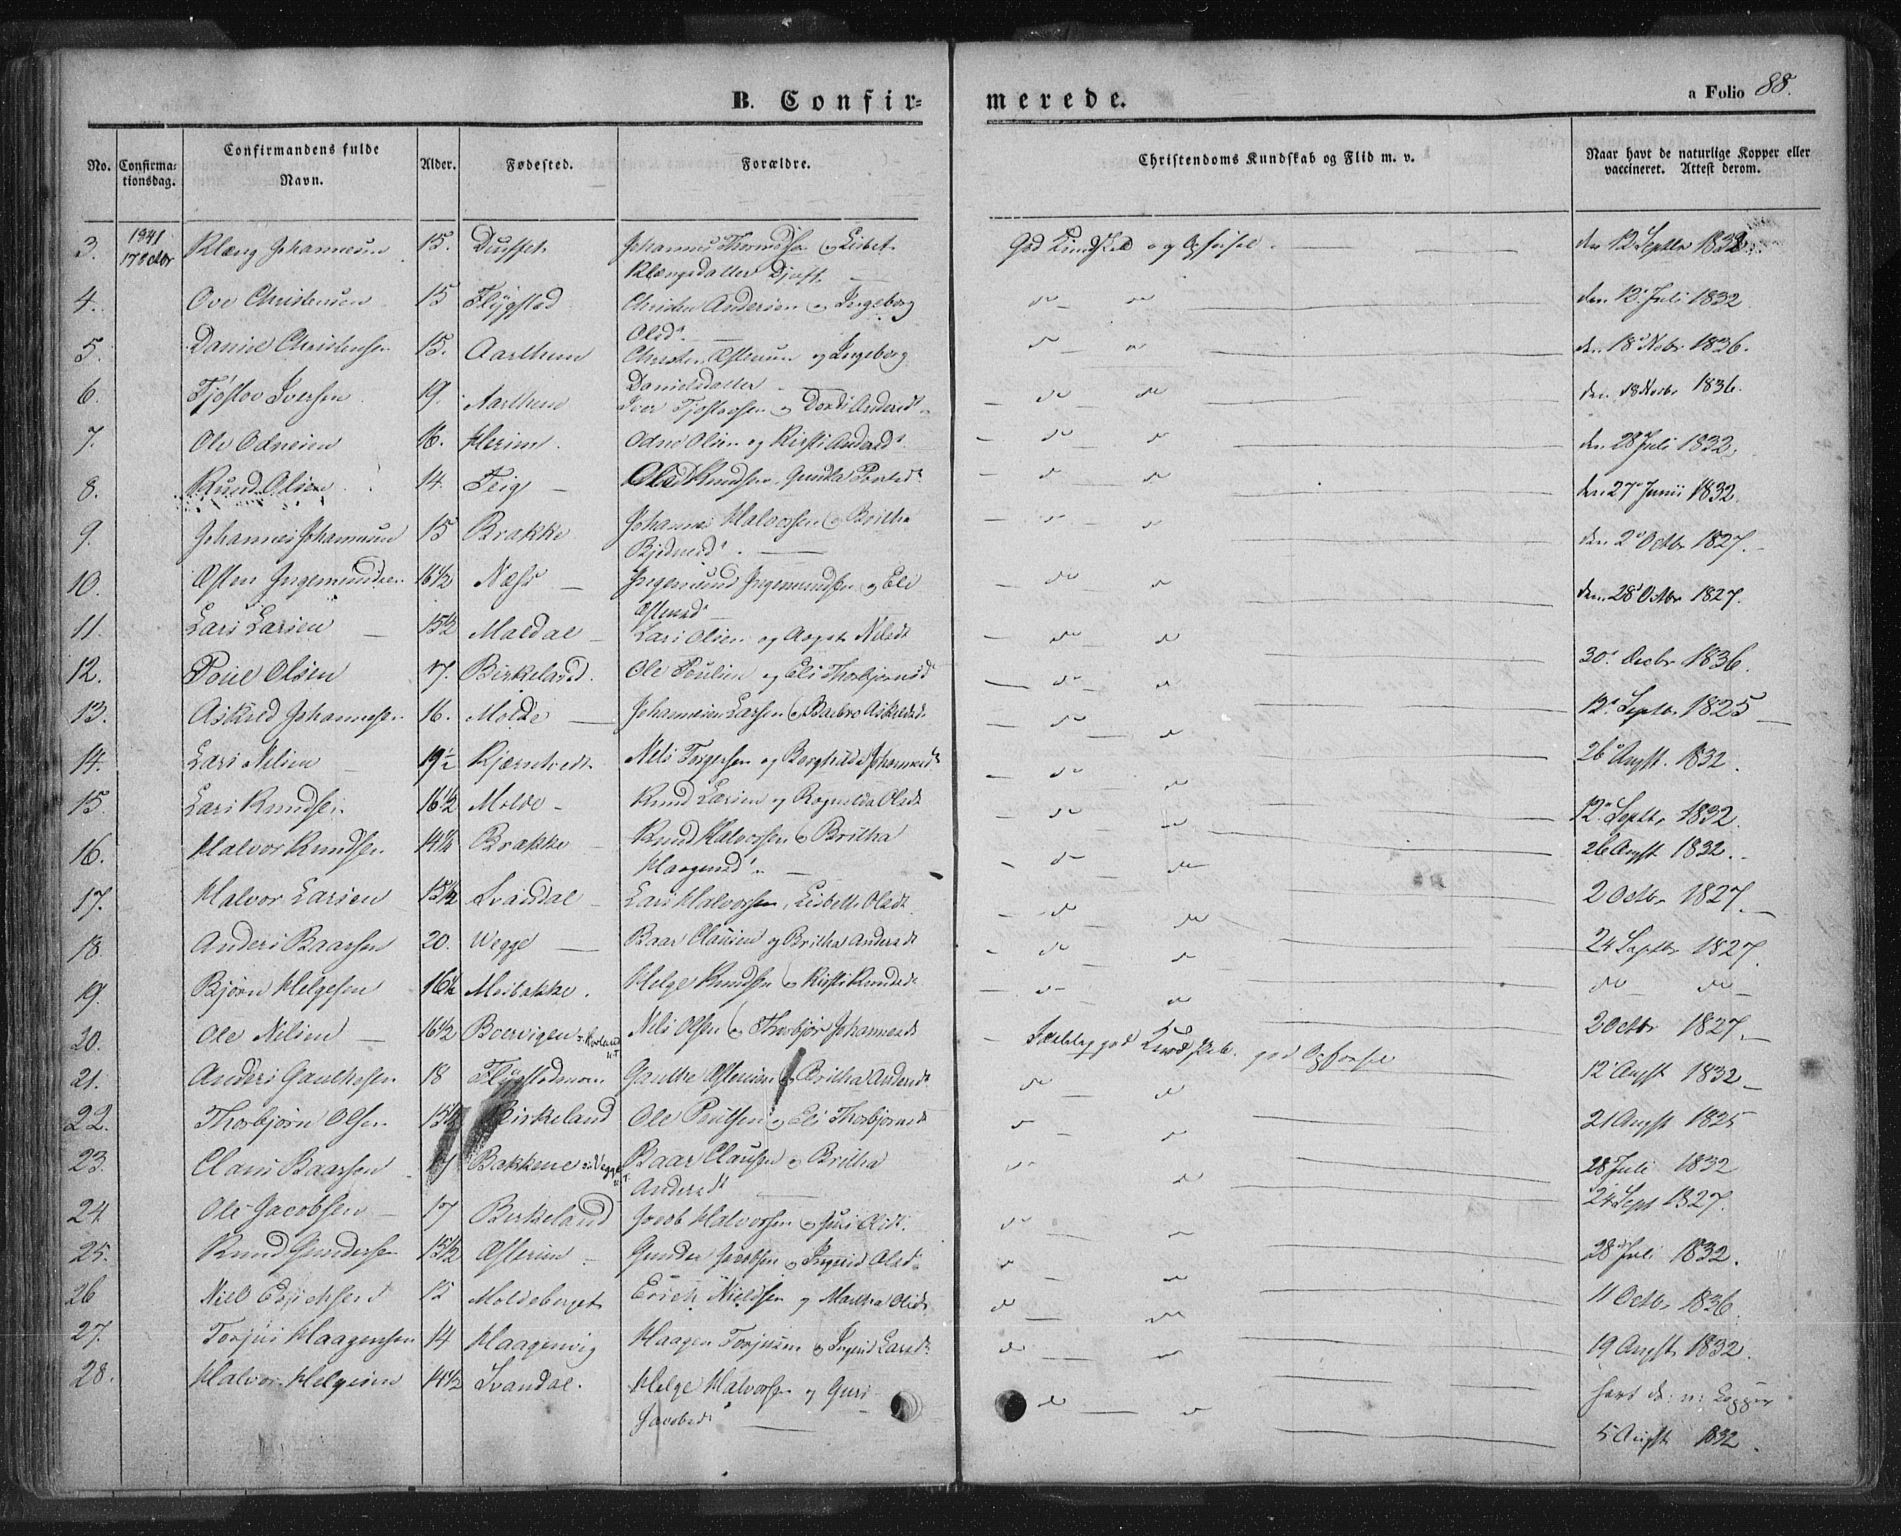 B. Confir=
merede.
a Folio 88.
No. Confirma= tionsdag. Confirmandens fulde Navn. Alder. Fødested. Forældre. Christendoms Kundskab og Flid m. v. Naar havt de naturlige Kopper eller vaccineret. Attest derom.
3. 1841 17 Octbr Klæng Johannesen 15. Johannes & Lisbet God Kundskab og Opførsel. den 12 Septbr 1832
Klængsdatter
4. Ove Christensen 15 Flygstod Christen Andersen & Ingeborg do do den 12 Juli 1832
Olsd.
5. Daniel Christensen 15. Aarthun Christen og Ingeborg do do den 18 Nobr 1836.
Danielsdatter
6. Tjøstov Iversen 19. Aarthun Iver Tjostovsen & Dordi Andersd. do do den 18 Nobr 1836.
7. Ole Odnesen 16. Herim. Odne Olsen og Kirsti Andersd. do do den 28 Juli 1832.
8. Knud Olsen 14 Teig Knudsen, do do den 27 Junii 1832.
9. Johannes Johannesen 15 Brakke Johannes Halvorsen & Britha do do den 2 Octbr 1827.
10. Østen Ingemundsen 16 1/2 Næss Ingemund Ingemundsen & Eli do do den 28 Octbr 1827.
Østensd.
11. Lars Larsen 15 1/2 Maldal Lars Olsen og Aagot Nilsdt do do
12. Poul Olsen 17. Birkeland. Ole Poulsen og Eli Thorbjørnsd do do 30. Decbr 1836.
13. Askild Johannesen 16. Molde Johannesen Larsen & Barbro Askildsdt do do 12. Septbr 1825
14. Lars Nilsen 19 1/2 Kjærstvedt Nils Torgersen og Borghilda Johannesdt do do 26 Augst. 1832.
15. Lars Knudsen 16 1/2 Molde Knud Larsen og Ragnilda Olsdt do do 12 Septbr 1832.
16. Halvor Knudsen 14 1/2 Brakke Knud Halvorsen & Britha do do 26 Augst 1832.
Haagensd.
17. Halvor Larsen 15 1/2 Svandal Lars Halvorsen, Lisbeth Olsdt. do do 2 Octbr 1827.
18. Anders Baarsen 20. Wegge Baar Clausen og Britha Andersdt do do 24 Septbr 1827.
19. Bjørn Helgesen 16 1/2 Meibakke. Helge Knudsen & Kirsti Knudsdt do do do do
20. Ole Nilsen 16 1/2 Boervigen Nils Olsen & Thorbjør Johannesdt Særdeles god Kundskab. god Opførsel 2 Octbr 1827.
21. Anders Gauthesen 18 Flygstodmoen Gauthe Østensen & Britha Andersdt do do 12 Augst 1832
22. Thorbjørn Olsen 15 1/2 Birkeland Ole Poulsen & Eli Thorbjørnsdt do do 21 Augst 1825
23. Claus Baarsen Bakkene u. Vegge Baar Clausen & Britha do do 28 Juli 1832
Andersdt
24. Ole Jacobsen 17 Birkeland Jacob Halvorsen & Guri Olsdt. do do 24 Sept 1827.
25. Knud Gundersen 15 1/2 Gunder Jacobsen & Ingrid Olsd. do do 28 Juli 1832.
26 Niels Erichsen 15 Moldeberget Erich Nielsen og Martha Olsdt do do 11 Octbr 1836
27. Torjus Haagensen 14 Haagenvig Haagen Torjusen & Ingrid Larsdt do do 19 Augst 1832.
28. Halvor Helgesen 14 1/2 Svandal. Helge Halvorsen og Guri do do havt d: n: Kopper
Jacobsdt
5 Augst 1832.